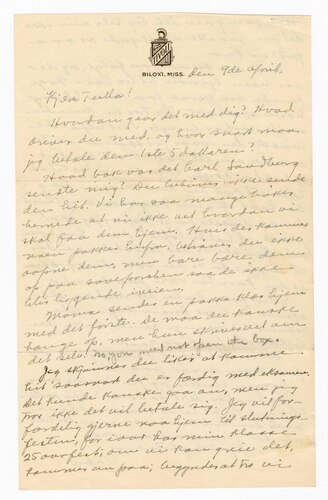 BILOXI, MISS. den 9de April.
Kjære Tulla!
Hvordan gaar det med dig? Hvad
driver du med, og hvor snart maa
jeg betale den 1ste 5 dollaren?
Hvad bok var det Carl Sandburg
sendte mig? Du behøver ikke sende
den hit. Vi har saa mange bøker
hernede at vi ikke vet hvordan vi
skal faa dem hjem. Hvis der kommer
noen pakker behøver du ikke
aapne dem, men bare bære dem
op paa soveporchen saa de ikke
blir liggende iveien.
Mama sender en pakke klær hjem
med det første. De maa du kanske
hænge op, men hun skriver vel om
det selv. No, you need not open the box.
Jeg skjønner du liker at komme
hit saasnart du er færdig med eksamen.
Det kunde kanske gaa an, men jeg
tror ikke det vil betale sig. Jeg vil for-
færdelig gjerne naa hjem til slutnings-
festen, for iaar har min klasse
25aarsfest; om vi kan greie det,
kommer an paa, begynder at tro vi